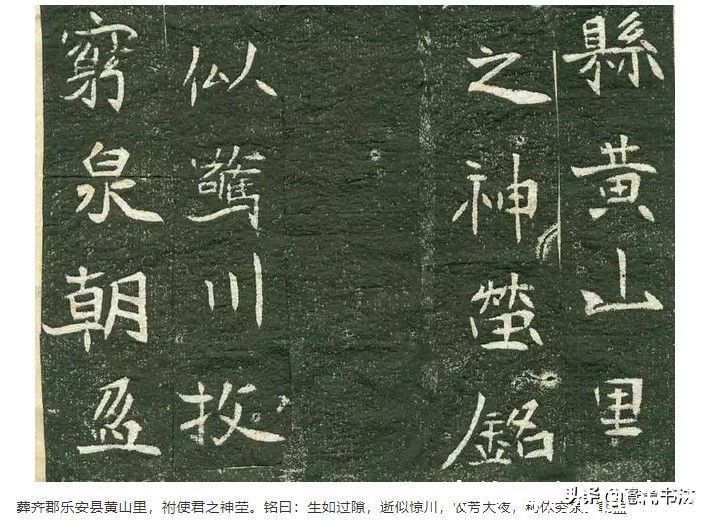 縣黄山里
之神塋銘
似驚川
窮泉朝盈
葬齐郡乐安县黄山里，祔使君之神茔。铭曰：生如过隙，逝似惊川，收芳大夜，
头条 @